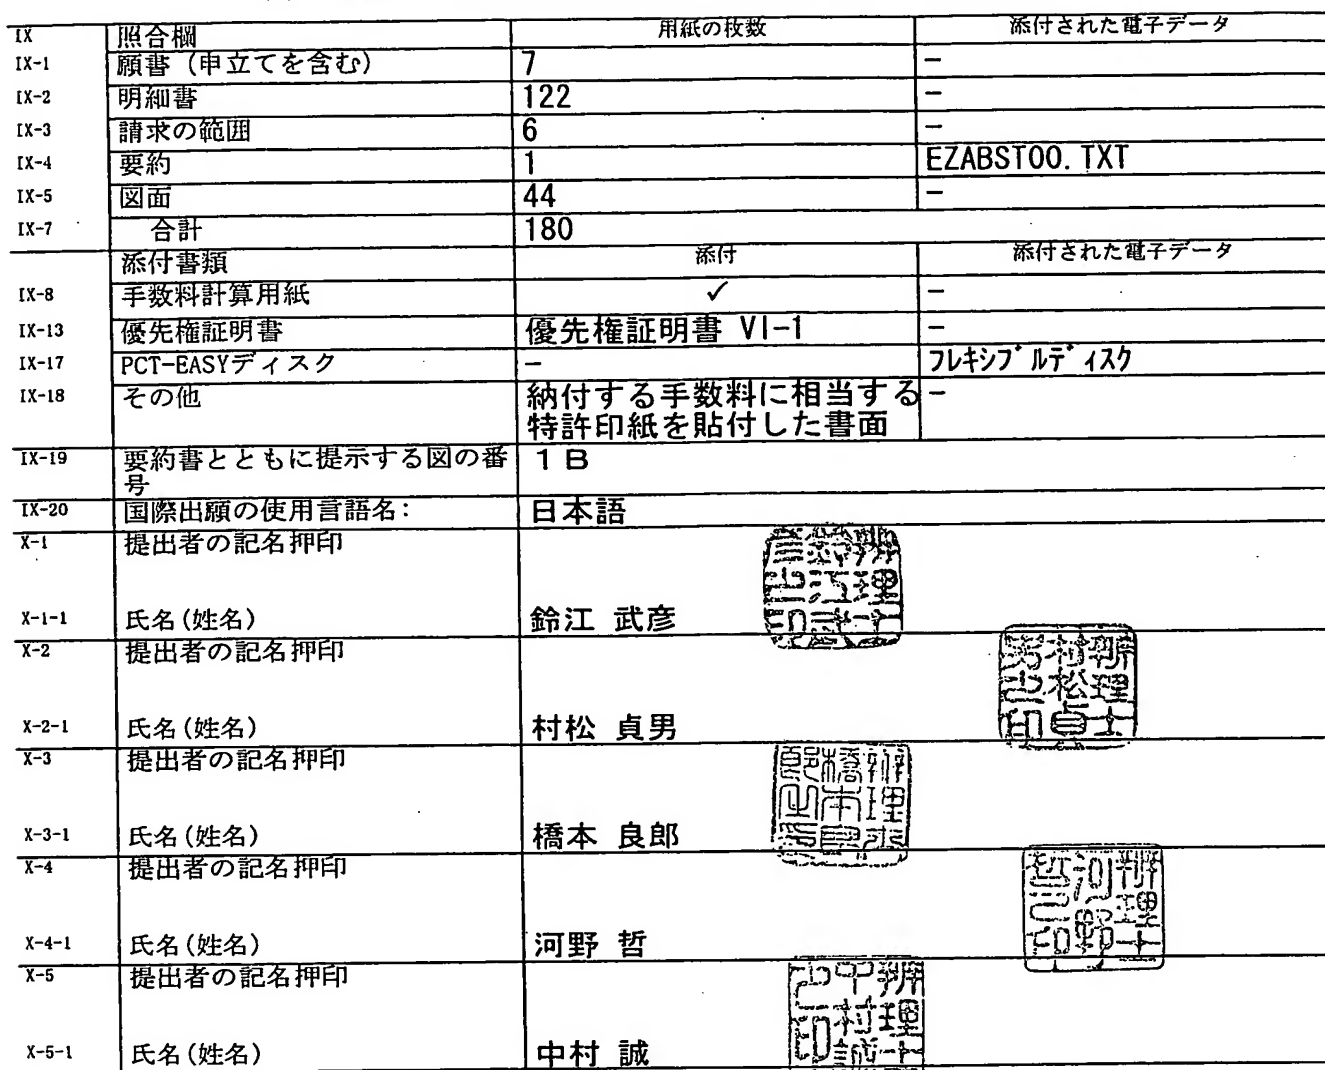 IX 照合欄 用紙の枚数 添付された電子データ
IX-1 願書(申立てを含む) 7 -
IX-2 明細書 122 -
IX-3 請求の範囲 6 -
IX-4 要約 1 EZABST00.TXT
IX-5 図面 44 -
IX-7 合計 180
添付書類 添付 添付された電子データ
IX-8 手数料計算用紙 ✓ -
IX-13 優先権証明書 優先権証明書 VI-1 -
IX-17 PCT-EASYディスク - フレキシブルディスク
IX-18 その他 納付する手数料に相当する -
特許印紙を貼付した書面
IX-19 要約書とともに提示する図の番 1 B
号
IX-20 国際出願の使用言語名: 日本語
X-1 提出者の記名押印
X-1-1 氏名(姓名) 鈴江 武彦
X-2 提出者の記名押印
X-2-1 氏名(姓名) 村松 貞男
X-3 提出者の記名押印
X-3-1 氏名(姓名) 橋本 良郎
X-4 提出者の記名押印
X-4-1 氏名(姓名) 河野 哲
X-5 提出者の記名押印
X-5-1 氏名(姓名) 中村 誠